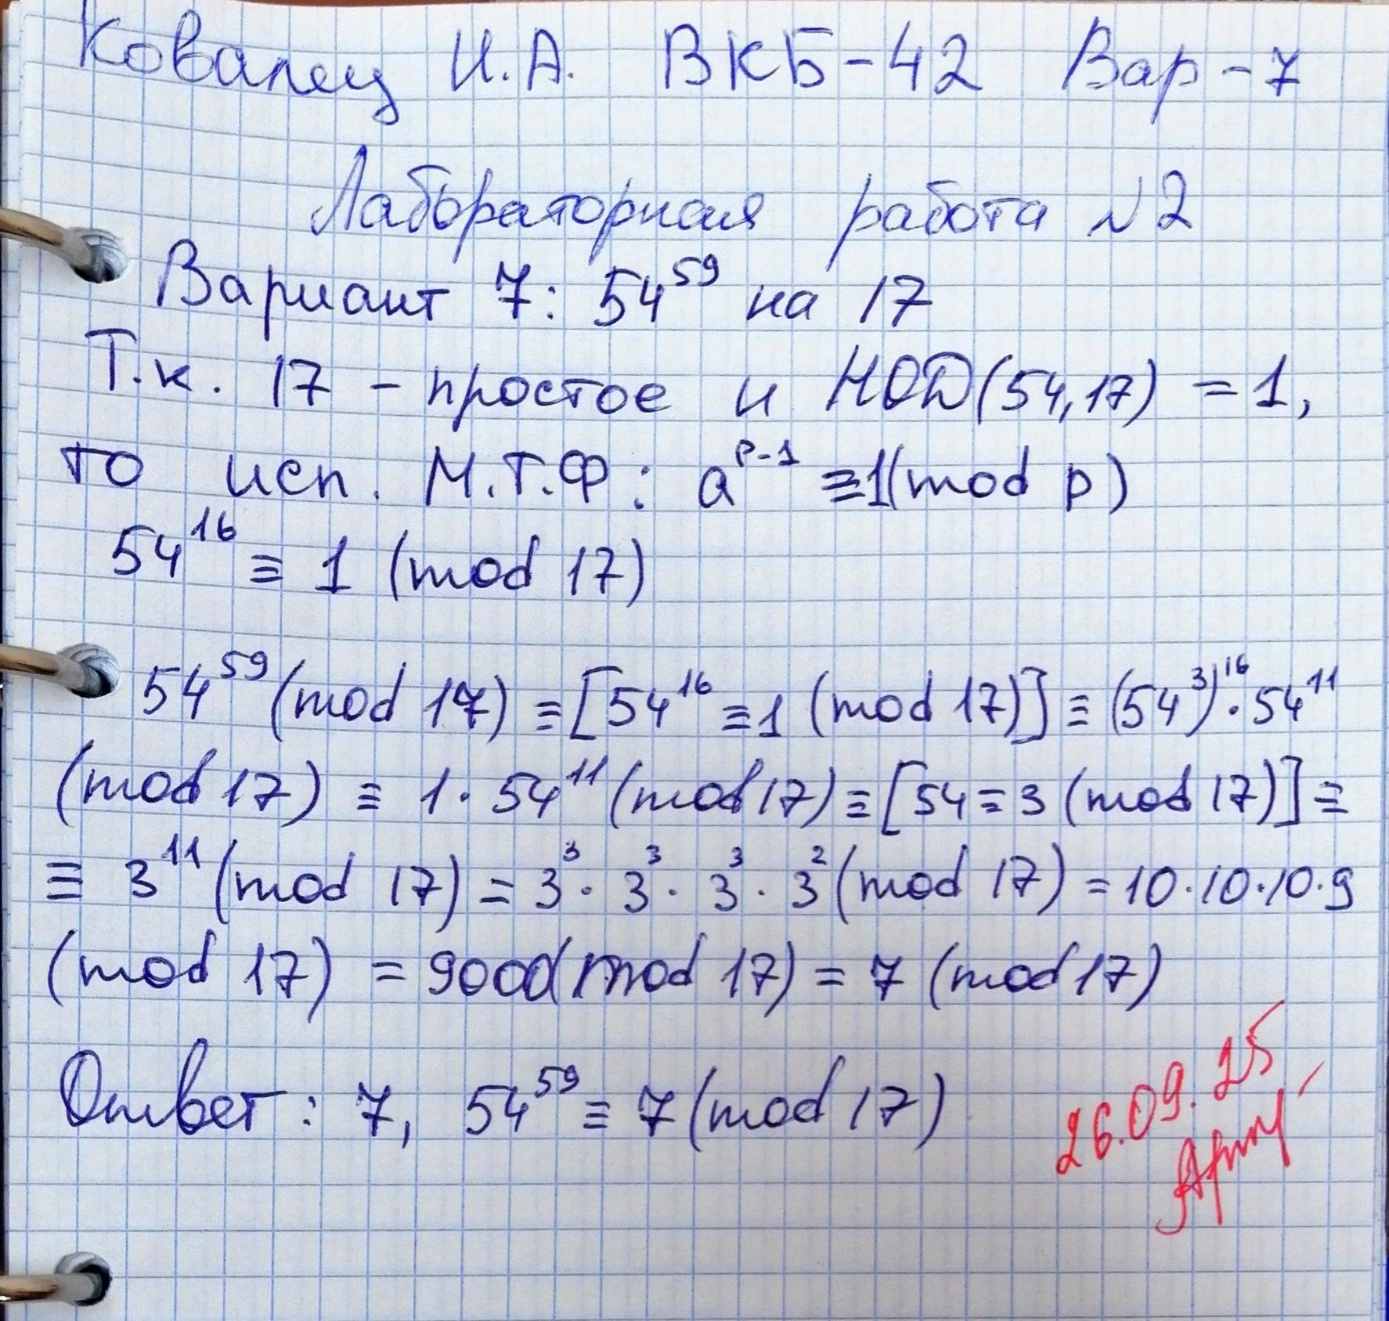 Ковалец И.А. ВКБ-42 Вар-7
Лабораторная работа №2
Вариант 7: 54^59 на 17
Т.к. 17 - простое и НОД(54,17) = 1,
то исп. М.Т.Ф: a^p-1 ≡1(mod p)
54^16 ≡ 1 (mod 17)
54^59 (mod 17) ≡ [54^16 ≡1 (mod 17)] ≡ (54^3)^16 · 54^11
(mod 17) ≡ 1 · 54^11 (mod 17) ≡ [54 ≡ 3 (mod 17)] ≡
≡ 3^11 (mod 17) = 3^3 · 3^3 · 3^3 · 3^2 (mod 17) = 10·10·10·9
(mod 17) = 9000(mod 17) = 7 (mod 17)
Ответ: 7, 54^59 ≡ 7 (mod 17)
26.09.25